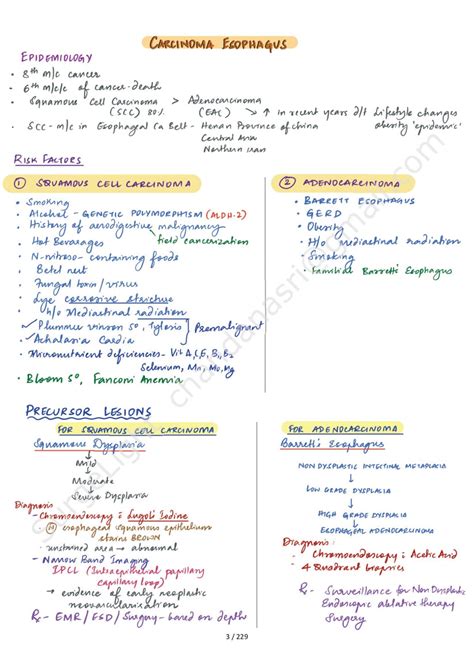 CARCINOMA ESOPHAGUS
EPIDEMIOLOGY
• 8th m/c cancer
• 6th m/c/c of cancer-death
• Squamous Cell Carcinoma > Adenocarcinoma
(SCC) 80% (EAC) → ↑ in recent years d/t Lifestyle changes
obesity 'epidemic'
• SCC - m/c in Esophageal Ca Belt - Henan Province of China
Central Asia
Northern Iran
RISK FACTORS
① SQUAMOUS CELL CARCINOMA
• Smoking
• Alcohol - GENETIC POLYMORPHISM (ALDH-2)
• History of aerodigestive malignancy
→ field cancerization
• Hot Beverages
• N-nitroso- containing foods
• Betel nut
• Fungal toxin/virus
• Lye corrosive stricture
• h/o Mediastinal radiation
✓ • Plummer vinson S°, Tylosis
✓ • Achalasia Cardia
Premalignant
• Micronutrient deficiencies - Vit A,C,E, B1, B2
Selenium, Mn, Mo, Mg
• Bloom S°, Fanconi Anemia
② ADENOCARCINOMA
• BARRETT ESOPHAGUS
• GERD
• Obesity
• H/o mediastinal radiation
• Smoking
• Familial Barrett's Esophagus
PRECURSOR LESIONS
FOR SQUAMOUS CELL CARCINOMA
Squamous Dysplasia
↓
Mild
↓
Moderate
↓
Severe Dysplasia
Diagnosis
- Chromoendoscopy: Lugol's Iodine
(N) esophageal squamous epithelium
stains BROWN
- unstained area → abnormal
- Narrow Band Imaging
IPCL (Intraepithelial papillary
capillary loop)
→ evidence of early neoplastic
neovascularization
Rx - EMR / ESD / Surgery - based on depth
FOR ADENOCARCINOMA
Barrett's Esophagus
↓
NON DYSPLASTIC INTESTINAL METAPLASIA
↓
LOW GRADE DYSPLASIA
↓
HIGH GRADE DYSPLASIA
↓
ESOPHAGEAL ADENOCARCINOMA
Diagnosis:
- Chromoendoscopy: Acetic Acid
- 4 Quadrant Biopsies
Rx - Surveillance for Non Dysplastic
Endoscopic ablative therapy
Surgery
3 / 229